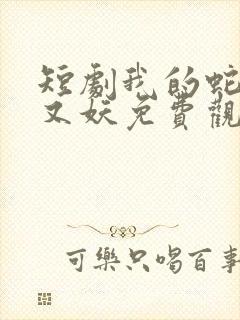 短劇我的蛇
又妖免費觀
可樂只喝百事